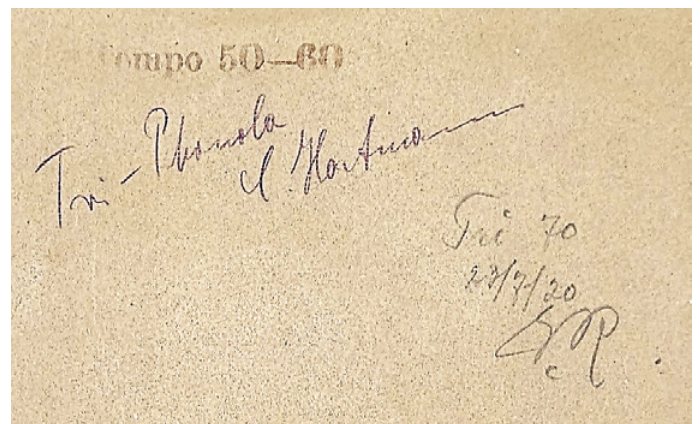 Tempo 50–60
Tri-Phonola
Hartmann
Tri 70
27/7/20